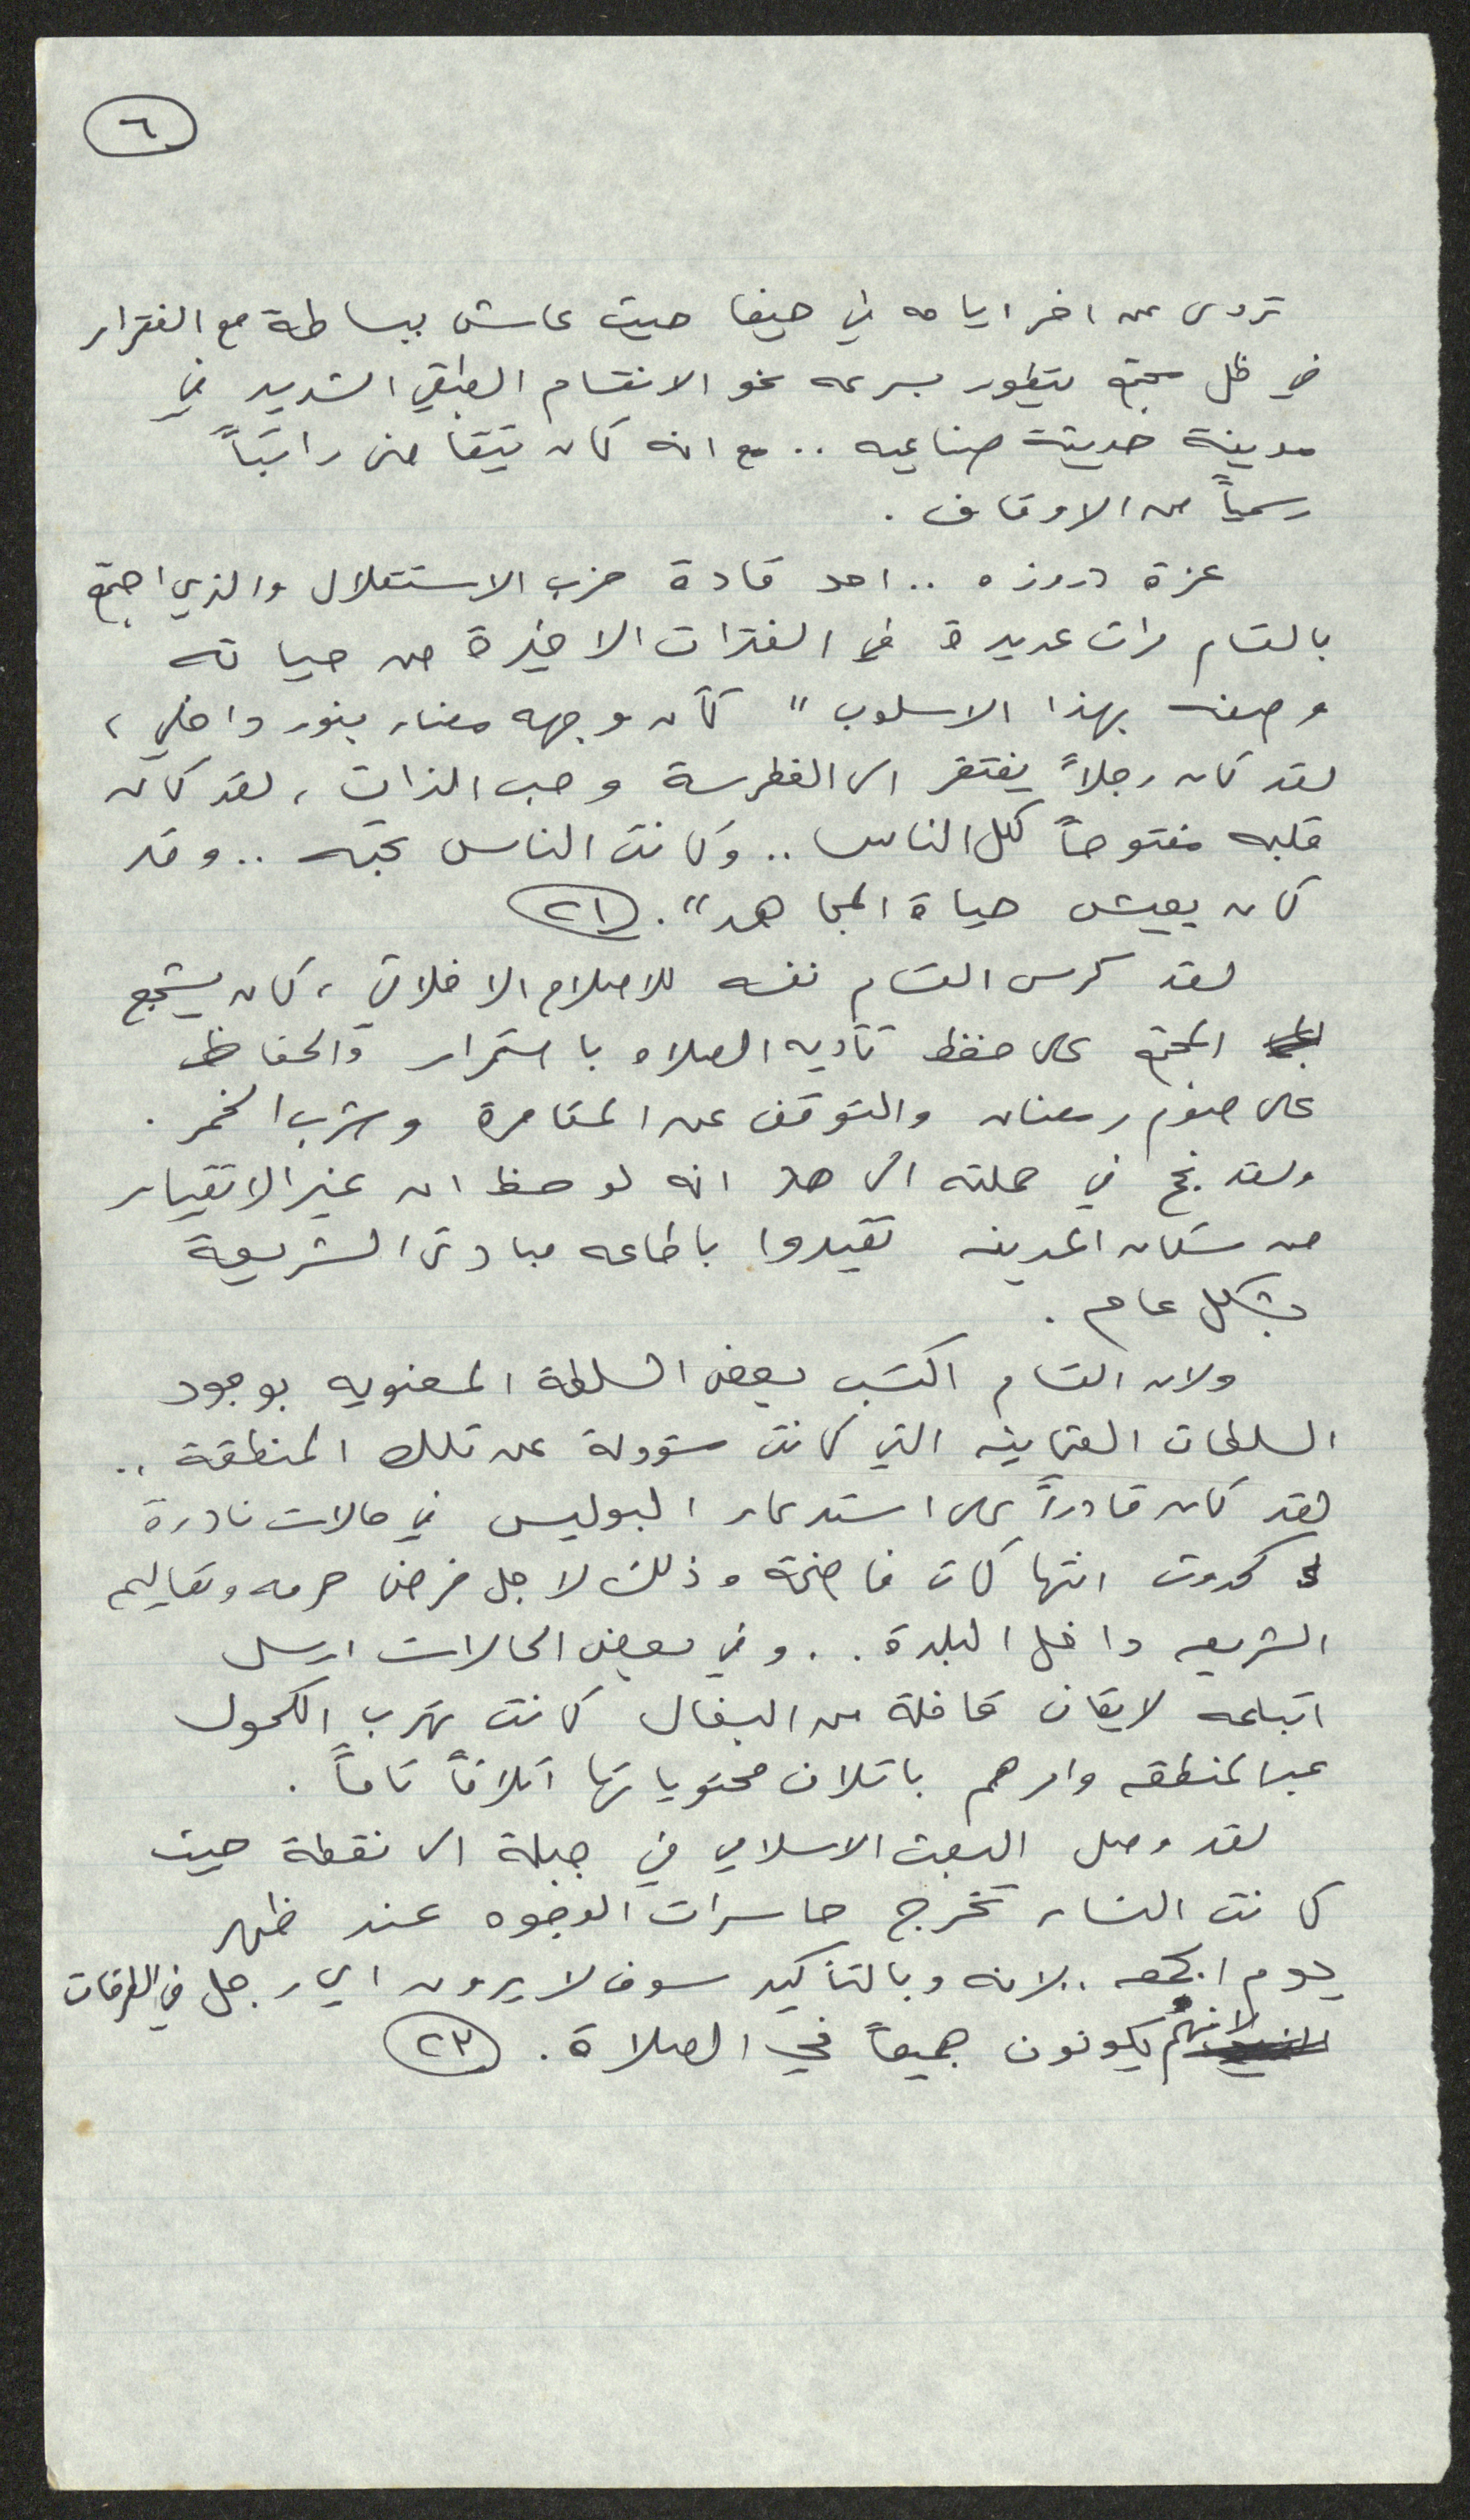 ٦
تروى عن اخر ايامه في حيفا حيث عاش ببساطة مع الفقراء
في ظل مجتمع يتطور بسرعه نحو الانقسام الطبقي الشديد في
مدينة حديثة صناعيه .. مع انه كان يتقاضى راتباً
رسمياً من الاوقاف .
عزة دروزه .. احد قادة حزب الاستقلال والذي اجتمع
بالقسام مرات عديدة في الفترات الاخيرة من حياته
وصفه بهذا الاسلوب " كأن وجهه مضاء بنور داخلي ،
لقد كان رجلاً يفتقر الى الغطرسة وحب الذات ، لقد كان
قلبه مفتوحاً لكل الناس .. وكانت الناس تحبه .. وقد
كان يعيش حياة المجاهد " . ٢١
لقد كرس القسام نفسه للاصلاح الاخلاقي ، كان يشجع
المجتمع على حفظ تأديه الصلاه باستمرار والحفاظ
على صوم رمضان والتوقف عن المقامرة وشرب الخمر .
ولقد نجح في حملته الى حد انه لوحظ ان غير الاتقياء
من سكان المدينه تقيدوا باطاعه مبادئ الشريعة
بشكل عام .
ولان القسام اكتسب بعض السلطة المعنويه بوجود
السلطات العثمانيه التي كانت مسؤولة عن تلك المنطقة ..
لقد كان قادراً على استدعاء البوليس في حالات نادرة
لحدوث انتهاكات فاضحة وذلك لاجل فرض حرمه وتعاليم
الشريعه داخل البلدة .. وفي بعض الحالات ارسل
اتباعه لايقاف قافلة من البغال كانت تهرب الكحول
عبر المنطقه وامرهم باتلاف محتوياتها اتلافاً تاماً .
لقد وصل البعث الاسلامي في جبلة الى نقطة حيث
كانت النساء تخرج حاسرات الوجوه عند ظهر
يوم الجمعه .. لانه وبالتأكيد سوف لا يرون اي رجل في الطرقات
لانهم يكونون جميعاً في الصلاة . ٢٣